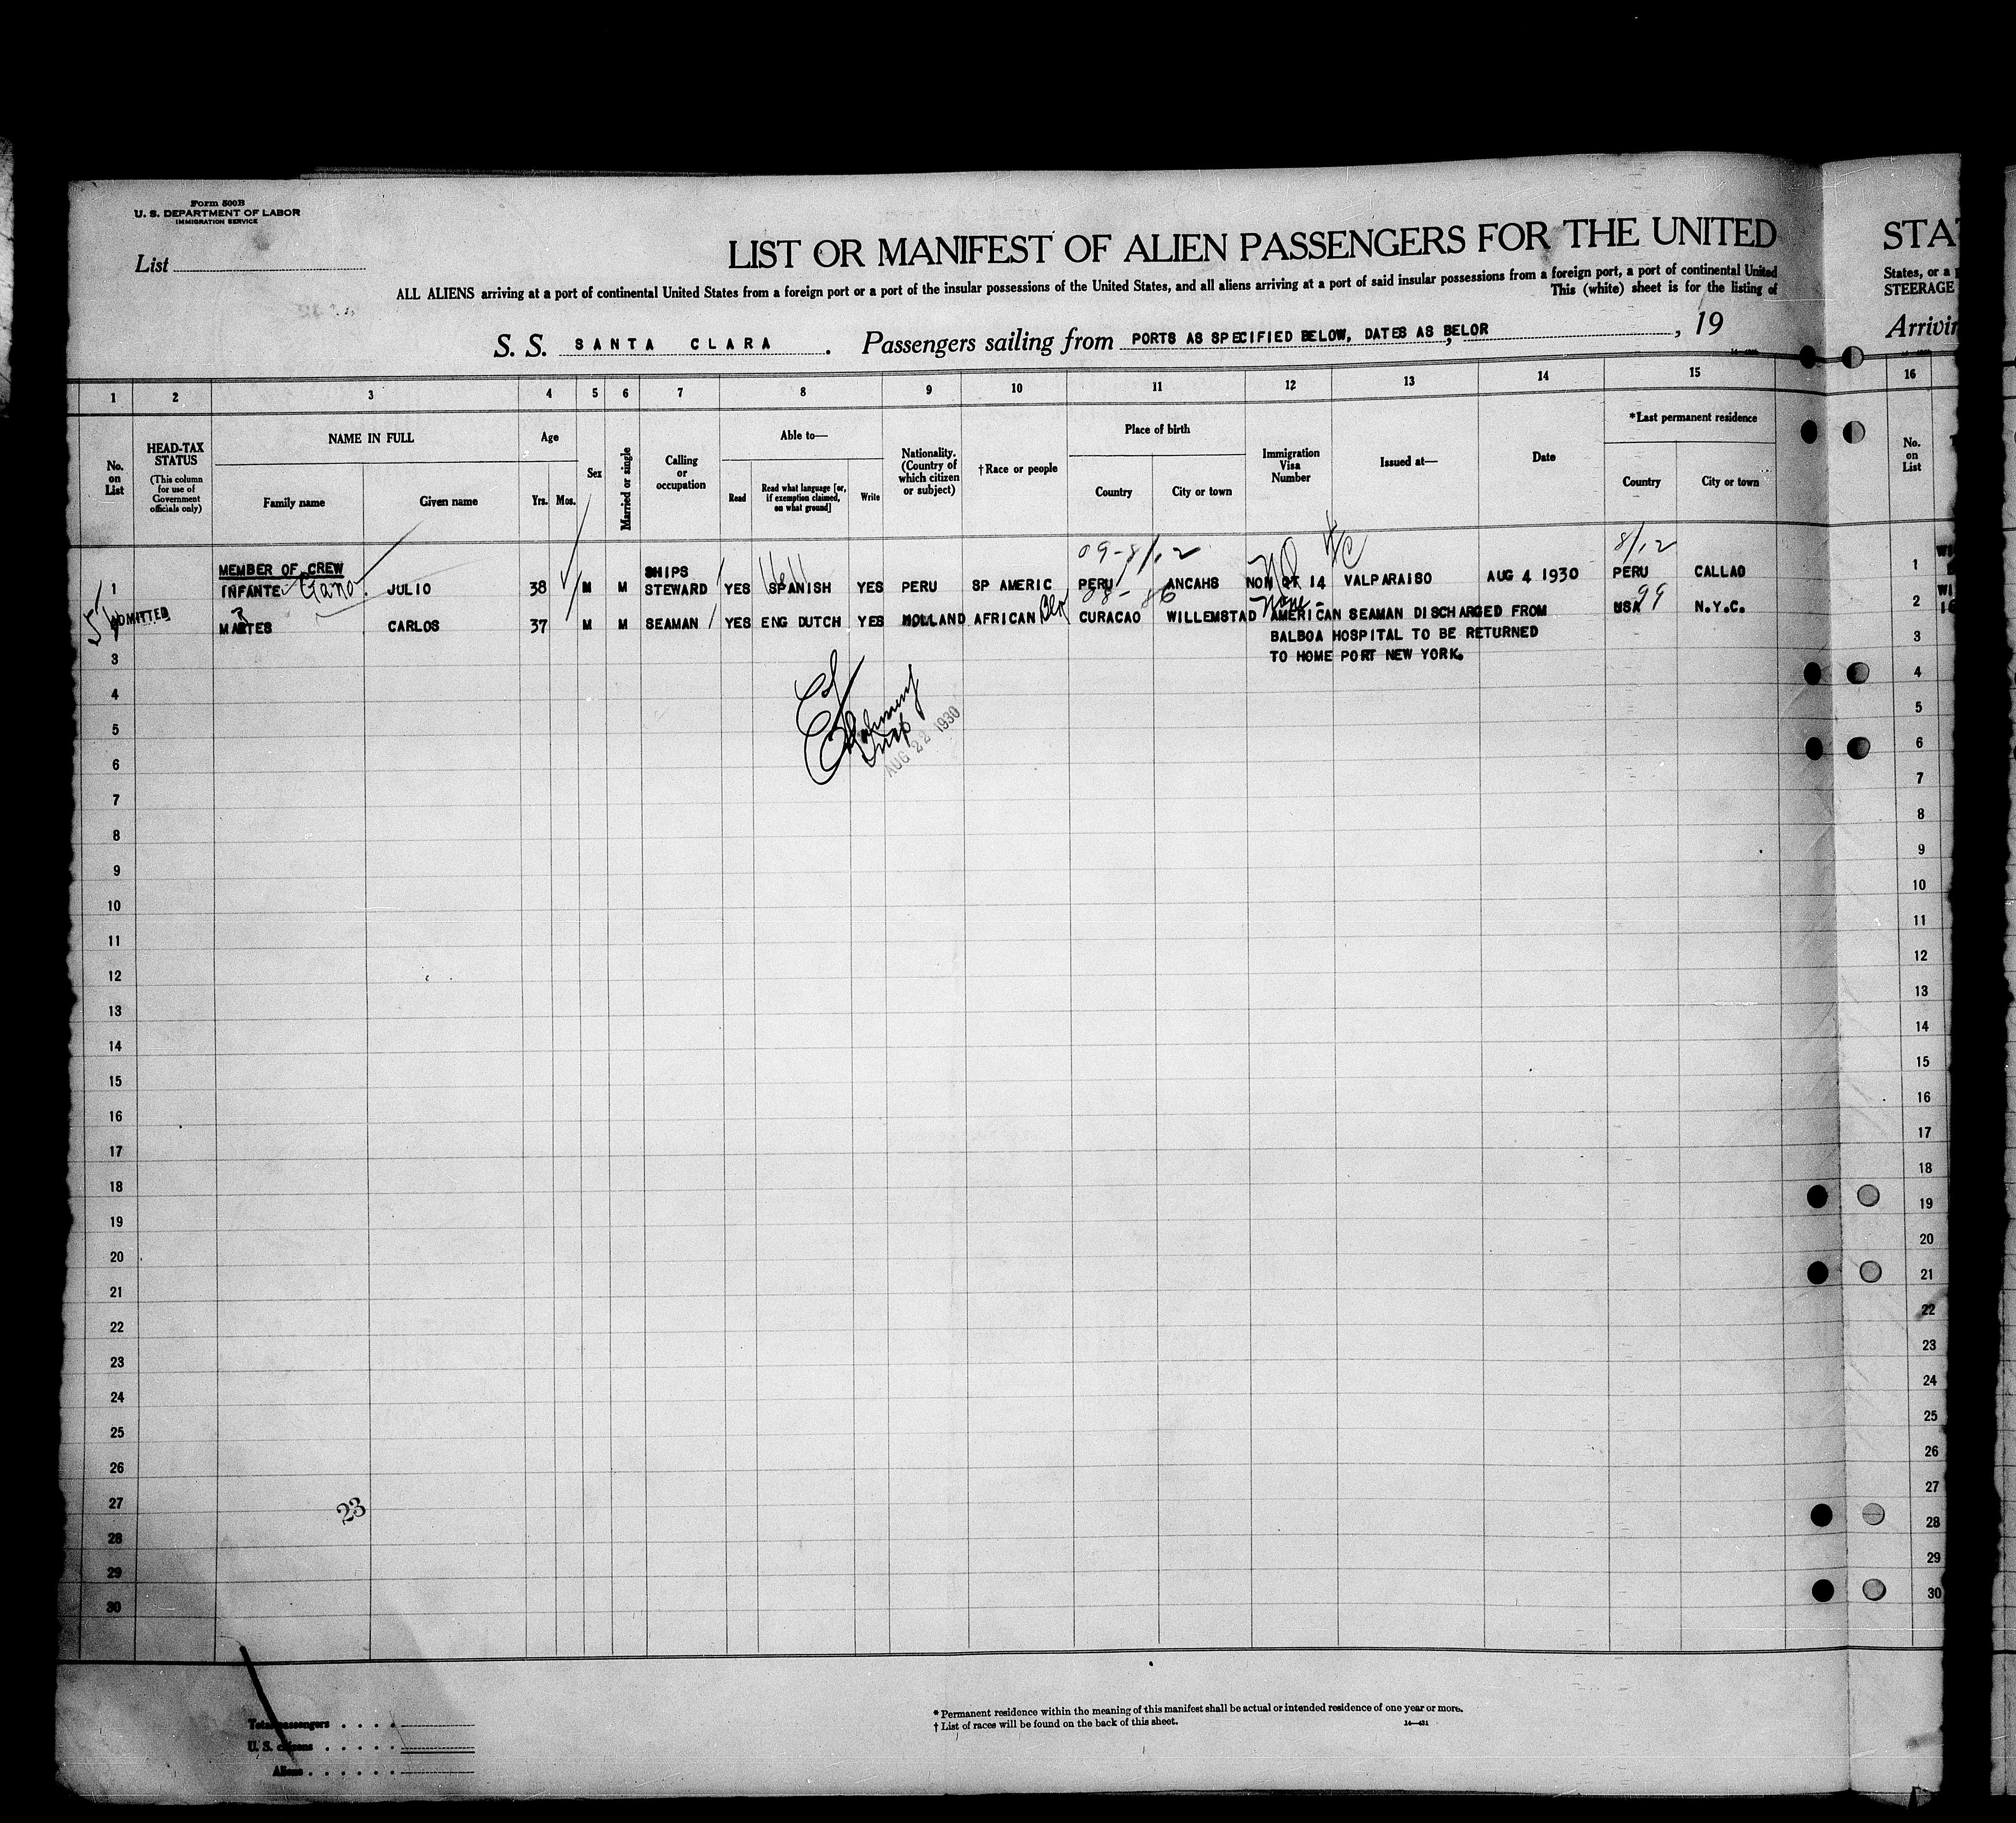 Form 500B
U. S. DEPARTMENT OF LABOR
IMMIGRATION SERVICE
List
LIST OR MANIFEST OF ALIEN PASSENGERS FOR THE UNITED
STA
ALL ALIENS arriving at a port of continental United States from a foreign port or a port of the insular possessions of the United States, and all aliens arriving at a port of said insular possessions from a foreign port, a port of continental United
States, or a
This (white) sheet is for the listing of
STEERAGE
S. S. SANTA CLARA . Passengers sailing from PORTS AS SPECIFIED BELOW, DATES AS BELOR , 19
Arrivin
1 2 3 4 5 6 7 8 9 10 11 12 13 14 15 16
No. on List
HEAD-TAX STATUS
(This column for use of Government officials only)
NAME IN FULL
Family name
Given name
Age
Yrs. Mos.
Sex
Married or single
Calling or occupation
Able to—
Read
Read what language [or, if exemption claimed, on what ground]
Write
Nationality. (Country of which citizen or subject)
† Race or people
Place of birth
Country
City or town
Immigration Visa Number
Issued at—
Date
*Last permanent residence
Country
City or town
No. on List
09-8/12
8/12
MEMBER OF CREW
1 INFANTE JULIO 38 M M SHIPS STEWARD YES SPANISH YES PERU SP AMERIC PERU ANCAHS NO 14 VALPARAISO AUG 4 1930 PERU CALLAO 1
08-86
None
99
ADMITTED MARTES CARLOS 37 M M SEAMAN YES ENG DUTCH YES HOLLAND AFRICAN Blk CURACAO WILLEMSTAD AMERICAN SEAMAN DISCHARGED FROM USA N.Y.C. 2
BALBOA HOSPITAL TO BE RETURNED
TO HOME PORT NEW YORK.
3 3
4 4
5 5
Insp
AUG 22 1930
6 6
7 7
8 8
9 9
10 10
11 11
12 12
13 13
14 14
15 15
16 16
17 17
18 18
19 19
20 20
21 21
22 22
23 23
24 24
25 25
26 26
27 27
23
28 28
29 29
30 30
Total passengers
U. S. citizens
Aliens
* Permanent residence within the meaning of this manifest shall be actual or intended residence of one year or more.
† List of races will be found on the back of this sheet.
14—421